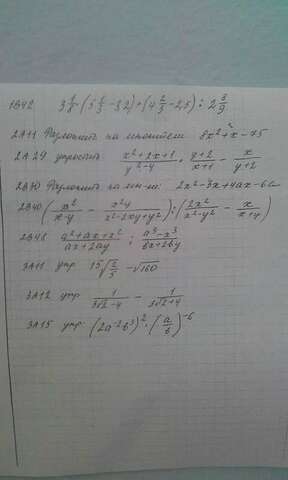 1В42 3 1/8 · (5 1/3 - 3,2) + (4 2/3 - 2,5) : 2 3/9
2А11 Разложить на множители 8x² + x - 75
2А29 упростить (x²+2x+1)/(y²-4) · (y+2)/(x+1) - x/(y+2)
2В30 Разложить на мн-ли: 2x² - 3x + 4ax - 6a
2В40 (x²/(x-y) - x²y/(x²-2xy+y²)) : (2x²/(x²-y²) - x/(x+y))
2В48 (a²+ax+x²)/(ax+2ay) : (a³-x³)/(bx+2by)
3А11 упр 15√(2/5) - √160
3А12 упр 1/(3√2-4) - 1/(3√2+4)
3А15 упр (2a⁻²b³)² · (a/b)⁻⁶